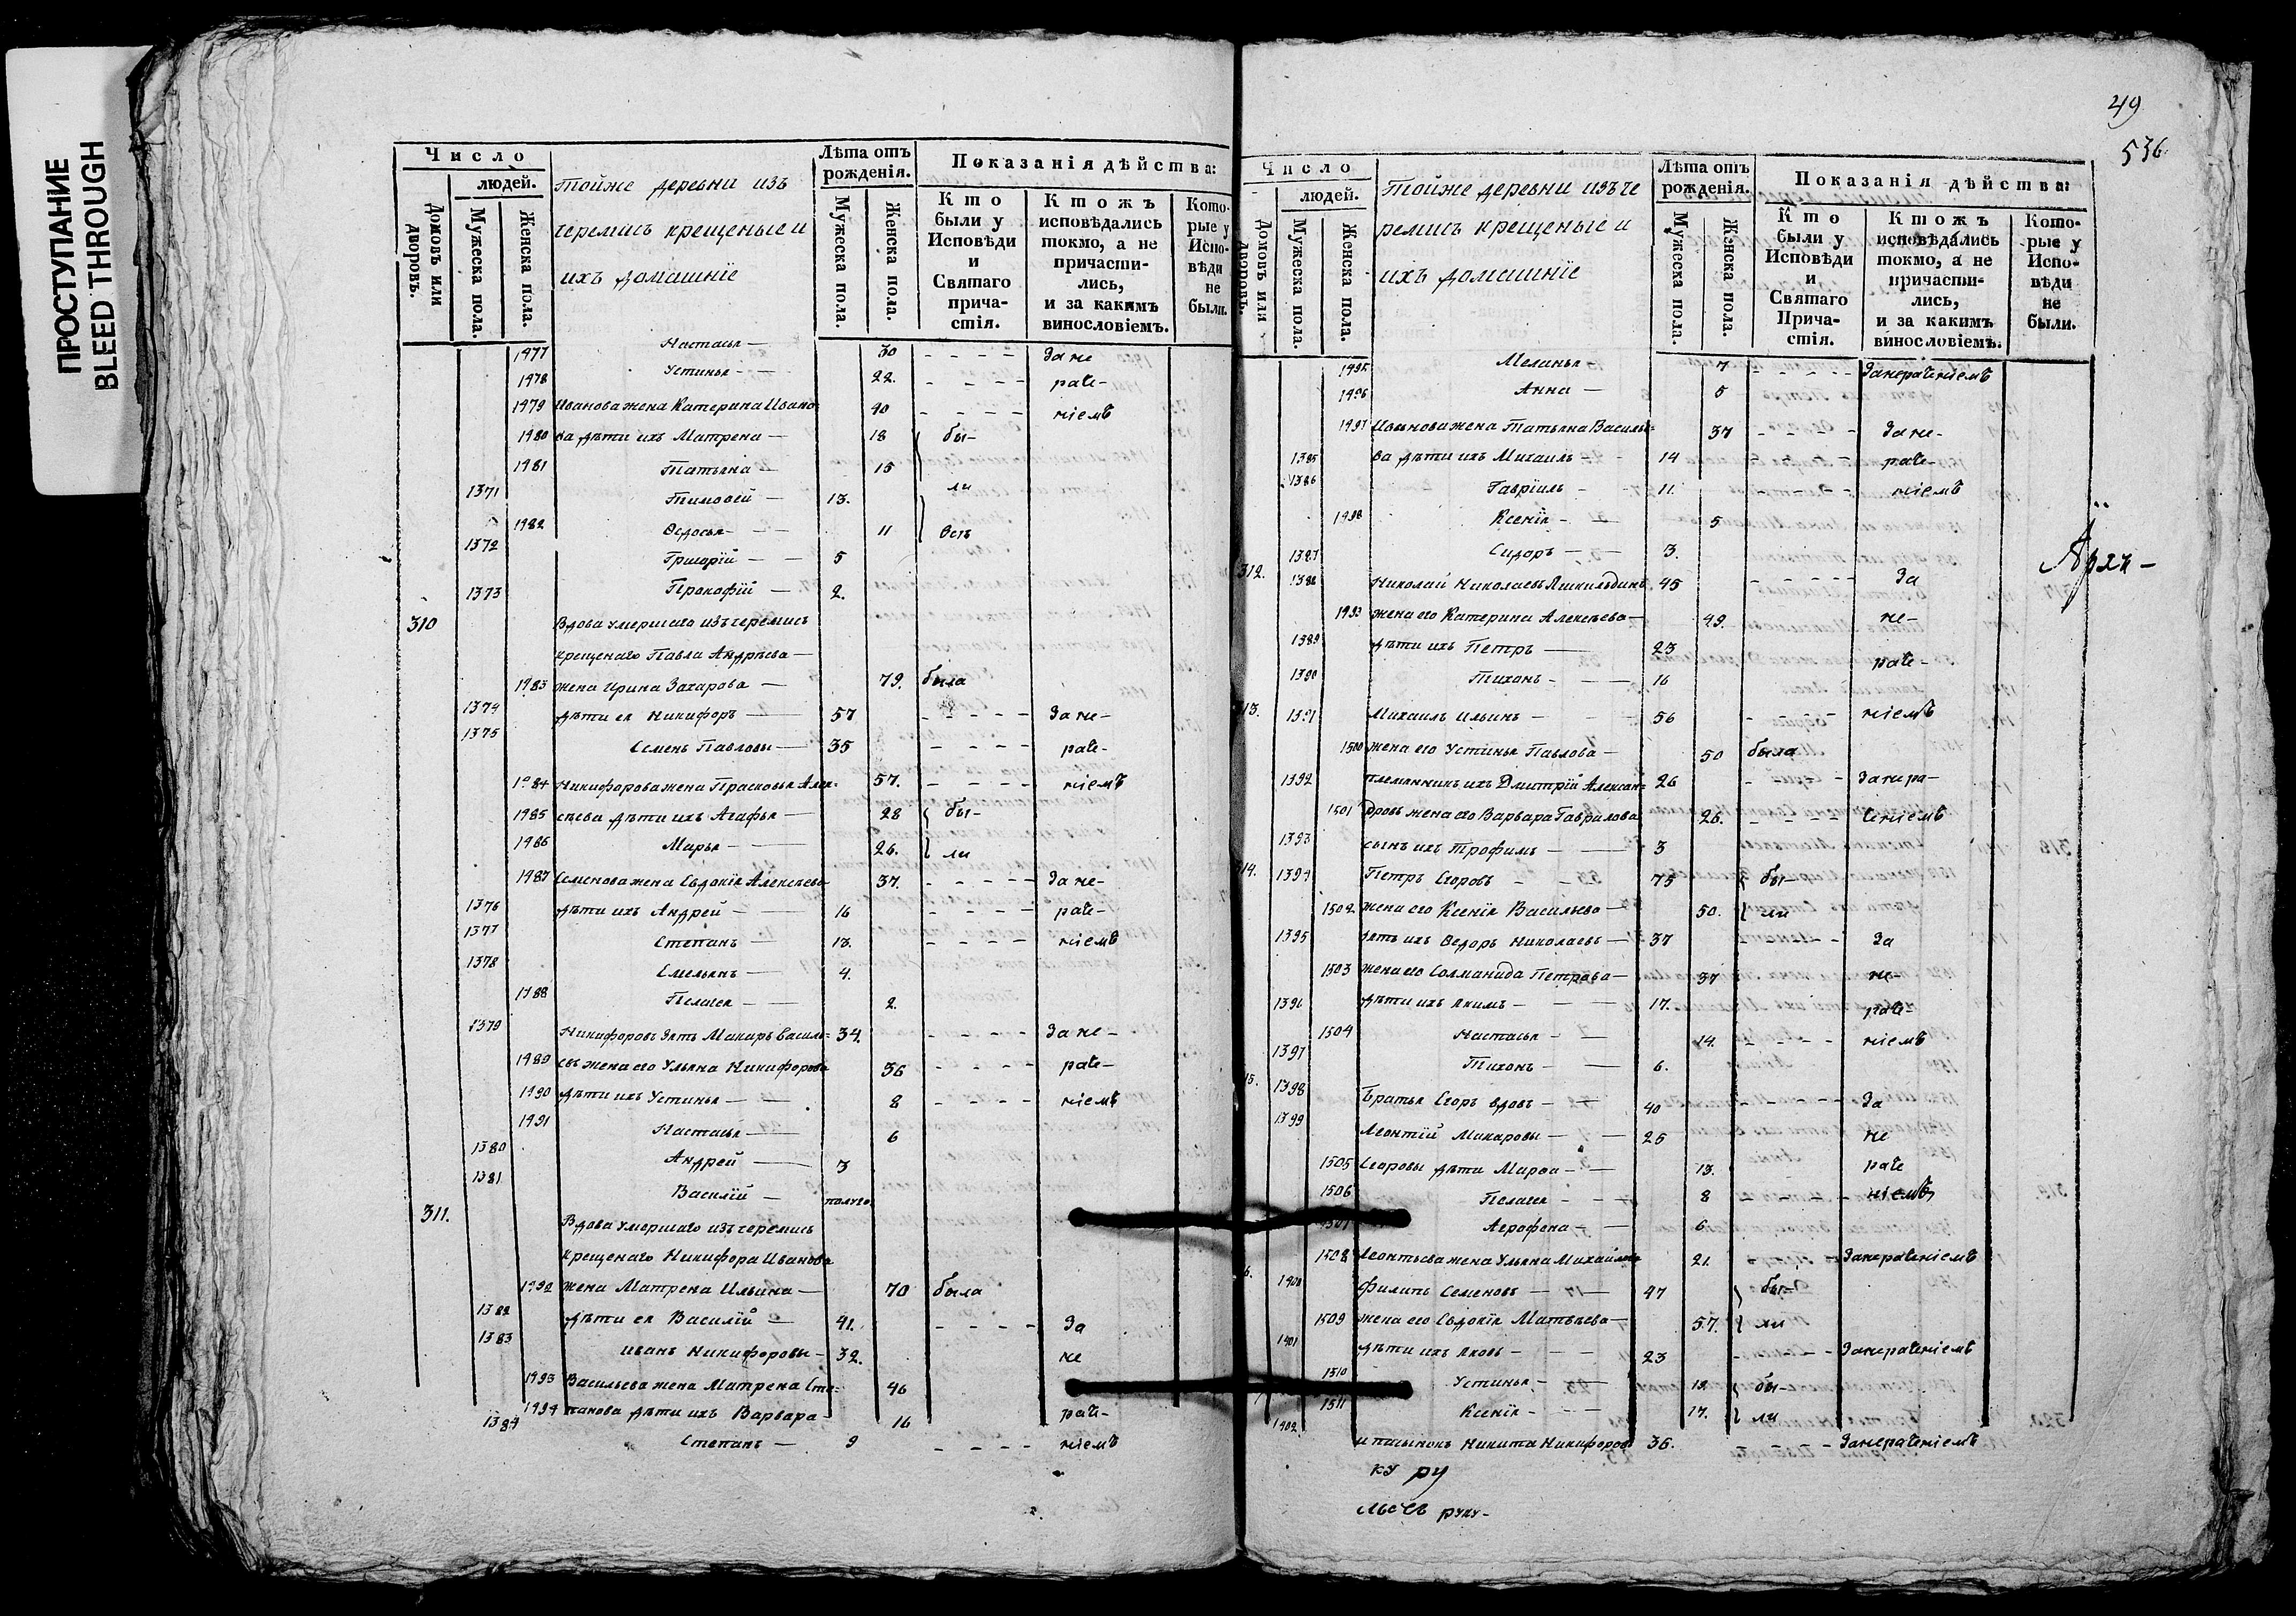 ПРОСТУПАНИЕ
BLEED THROUGH
Число
людей.
Домовъ или дворовъ.
Мужеска пола.
Женска пола.
тойже деревни изъ
черемисъ крещеные и
ихъ домашнїе
Лѣта отъ рожденія.
Мужеска пола.
Женска пола.
Показанія дѣйства:
Кто были у Исповѣди и Святаго прича-стія.
Ктожъ исповѣдались токмо, а не причасти-лись, и за какимъ винословіемъ.
Кото-рые у Испо-вѣди не были.
1477 Настасья — 30 - - - - За не
1478 Устинья — 22. - - - - раче-
1479 Иванова жена Катерина Ивано- 40 - - - - ніемъ
1480 ва дѣти ихъ Матрена — 18 бы-
1481 Татьяна — 15
1371 Тимоѳей — 13. ли
1482 Ѳедосья — 11 всѣ
1372 Григорїй — 5
1373 Прокофїй — 2.
310 Вдова умершаго изъ черемисъ
крещенаго Павла Андрѣева —
1483 жена Ирина Захарова — 79. была
1374 дѣти ея Никифоръ — 57 - - - - - За не-
1375 Семенъ Павловы — 35 - - - - раче-
1484 Никифорова жена Прасковья Алек- 57. - - - - ніемъ
1485 сѣева дѣти ихъ Агафья — 28 бы-
1486 Марья — 26. ли
1487 Семенова жена Евдокїя Алексѣева 37. - - - - - За не-
1376 дѣти ихъ Андрей — 16 - - - - раче-
1377 Степанъ — 13. - - - - ніемъ
1378 Емельянъ — 4.
1488 Пелагея — 2.
1379 Никифоровъ зять Макаръ Василь- 34. - - - - За не-
1489 евъ жена его Ульяна Никифорова 36 - - - - раче-
1490 дѣти ихъ Устинья — 8 - - - - ніемъ
1491 Настасья — 6
1380 Андрей — 3
1381 Василїй — полуго.
311. Вдова умершаго изъ черемисъ
крещенаго Никифора Иванова
1492 жена Матрена Ильина — 70 была
1382 дѣти ея Василїй — 41. - - - - За
1383 Иванъ Никифоровы — 32. не
1493 Васильева жена Матрена Сте- 46
1494 панова дѣти ихъ Варвара — 16 раче-
1384 Степанъ — 9 - - - - ніемъ
49
536
Число
людей.
Домовъ или дворовъ.
Мужеска пола.
Женска пола.
Тойже деревни изъ че
ремисъ крещеные и
ихъ домашнїе
Лѣта отъ рожденія.
Мужеска пола.
Женска пола.
Показанія дѣйства:
Кто были у Исповѣди и Святаго Прича-стія.
Ктожъ исповѣдались токмо, а не причасти-лись, и за какимъ винословіемъ.
Кото-рые у Испо-вѣди не были.
1495 Меланья — 7 - - - - - Занераченіемъ
1496 Анна — 5
1497 Иванова жена Татьяна Василье- 37 - - - - За не-
1385 ва дѣти ихъ Михаилъ — 14 раче-
1386 Гаврїилъ — 11. - - - - ніемъ
1498 Ксенїя — 5
1387 Сидоръ — 3.
312. 1388 Николай Николаевъ 45 - - - - - За
1499 жена его Катерина Алексѣева — 49. не-
1389 дѣти ихъ Петръ — 23 раче-
1390 Тихонъ — 16
313. 1391 Михаилъ Ильинъ — 56 - - - - ніемъ
1500 жена его Устинья Павлова — 50 была
1392 племянникъ ихъ Дмитрїй Алексан- 26 - - - Занера-
1501 дровъ жена его Варвара Гаврилова 26. - - - - ченіемъ
1393 сынъ ихъ Трофимъ — 3
314. 1394 Петръ Егоровъ - - 75 бы-
1502 жена его Ксенїя Васильева — 50. ли
1395 зять ихъ Ѳедоръ Николаевъ — 37 - - - За
1503 жена его Соломанида Петрова — 37 не-
1396 дѣти ихъ Якимъ — 17. раче-
1504 Настасья — 14. - - - - ніемъ
1397 Тихонъ — 6.
15. 1398 Братья Егоръ вдовъ — 40 - - - - - За
1399 Леонтїй Макаровы — 25 не
1505 Егоровы дѣти Марѳа — 13. раче
1506 Пелагея — 8 - - - - - ніемъ
1507 Агрофена — 6
1508 Леонтьева жена Ульяна Михайлова 21. Занераченіемъ
6. 1400 Филипъ Семеновъ — 47 бы-
1509 жена его Евдокїя Матвѣева — 57. ли
1401 дѣти ихъ Яковъ — 23 - - - - Занераченіемъ
1510 Устинья — 19. бы-
1511 Ксенїя — 17. ли
1402 и пасынокъ Никита Никифоровъ 36. - - - - Занераченіемъ
ку ру
льсеъ руку-
Архи-